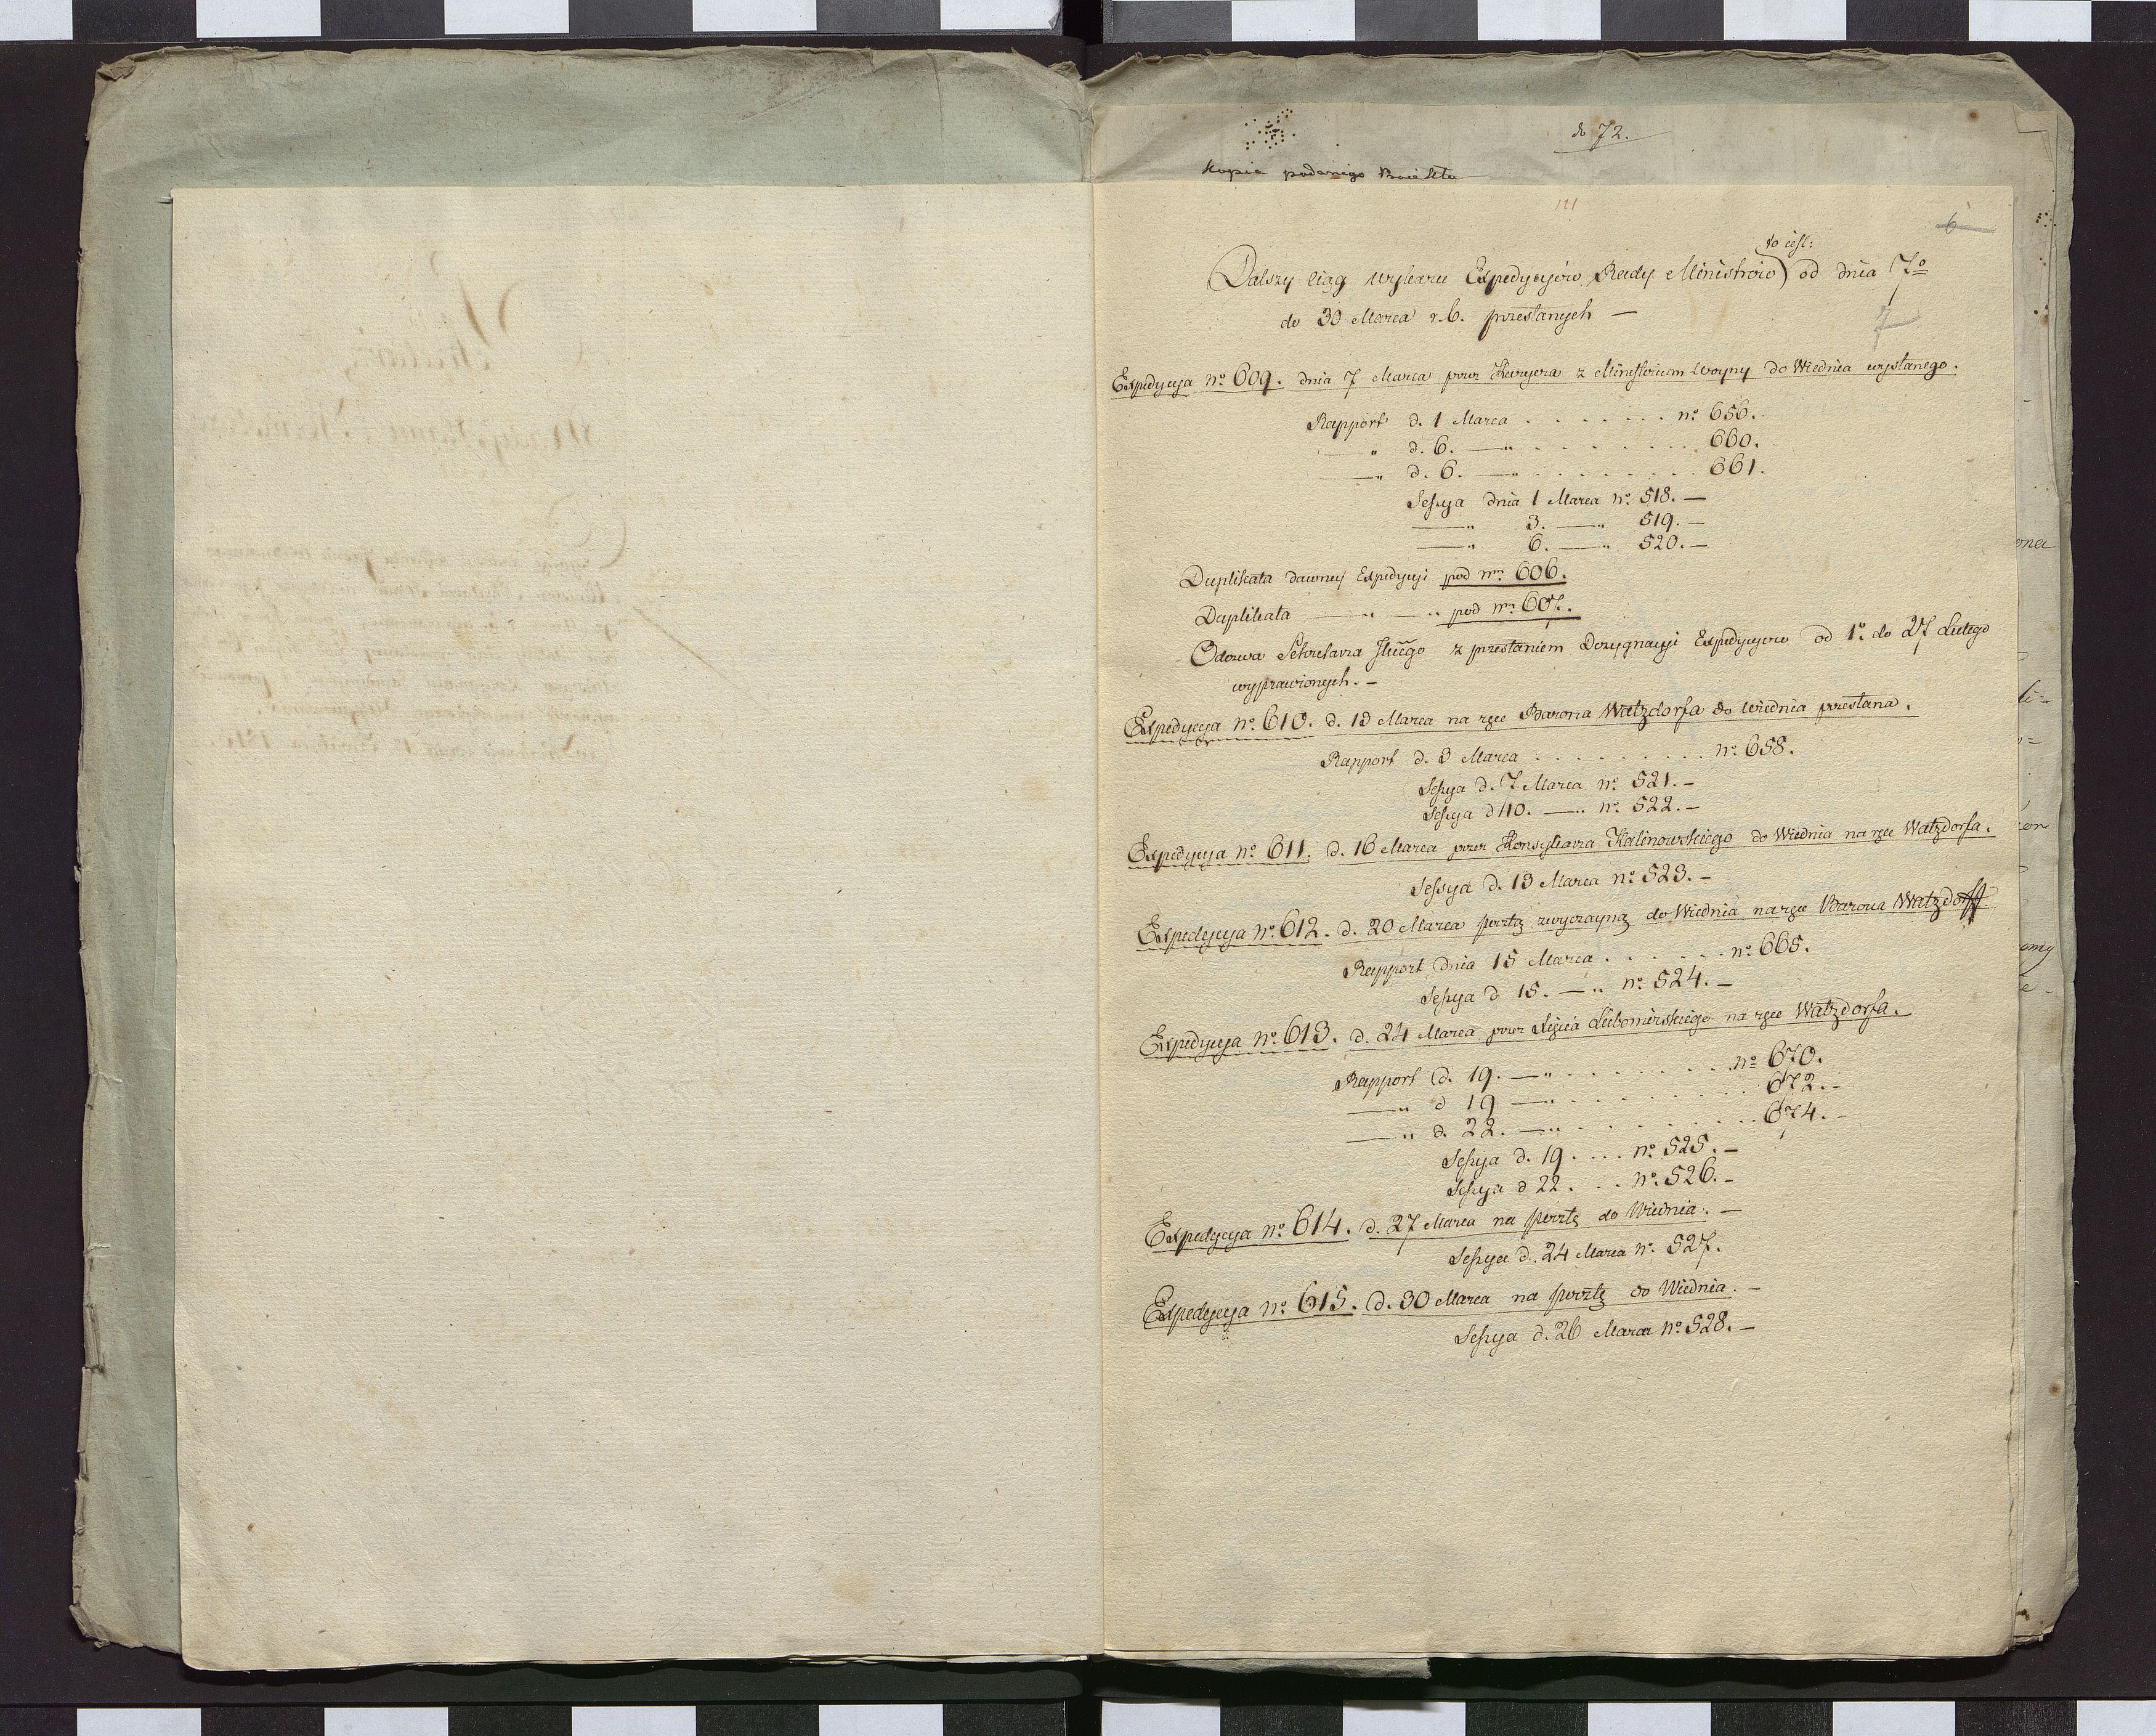 do 72.
Kopia podanego
6
do cesl:
Dalszy ciąg wykazu Expedycyiów Rady Ministrów od dnia 7º
do 30 Marca r.b. przesłanych —
7
Expedycya nº 609. dnia 7 Marca przez Kuryera z Ministerium Woyny do Wiednia wysłanego.
Rapport d. 1 Marca . . . . . . . nº 656.
—„ d. 6. —„ . . . . . . . . 660.
—„ d. 6. —„ . . . . . . . . 661.
Sessya dnia 1 Marca nº 518. —
—„ 3. —„ 519. —
—„ 6. —„ 520. —
Duplikata dawney Expedycyi pod nrm 606.
Duplikata —„ —„ pod nrm 607.
Odezwa Sekretarza z przesłaniem Expedycyow od 1º do 27 Lutego
wyprawionych. —
Expedycya nº 610. d. 13 Marca na ręce Barona Watzdorfa do Wiednia przesłana.
Rapport d. 3 Marca . . . . . . . . . nº 658.
Sessya d. 7 Marca nº 521. —
Sessya d 10. —„ nº 522. —
Expedycya nº 611. d. 16 Marca przez Konsyliarza Kalinowskiego do Wiednia na ręce Watzdorfa.
Sessya d. 13 Marca nº 523. —
Expedycya nº 612. d. 20 Marca pocztą zwyczayną do Wiednia na ręce Barona Watzdorff
Rapport dnia 15 Marca . . . . . . nº 665.
Sessya d 15. —„ nº 524. —
Expedycya nº 613. d. 24 Marca przez Xięcia Lubomirskiego na ręce Watzdorfa.
Rapport d. 19. —„ . . . . . . . . nº 670.
—„ d 19 —„ . . . . . . . . 672. —
—„ d. 22. —„ . . . . . . . . 674. —
Sessya d. 19. . . . nº 525. —
Sessya d 22. . . nº 526. —
Expedycya nº 614. d. 27 Marca na pocztę do Wiednia. —
Sessya d. 24 Marca nº 527.
Expedycya nº 615. d. 30 Marca na pocztę do Wiednia. —
Sessya d. 26 Marca nº 528. —